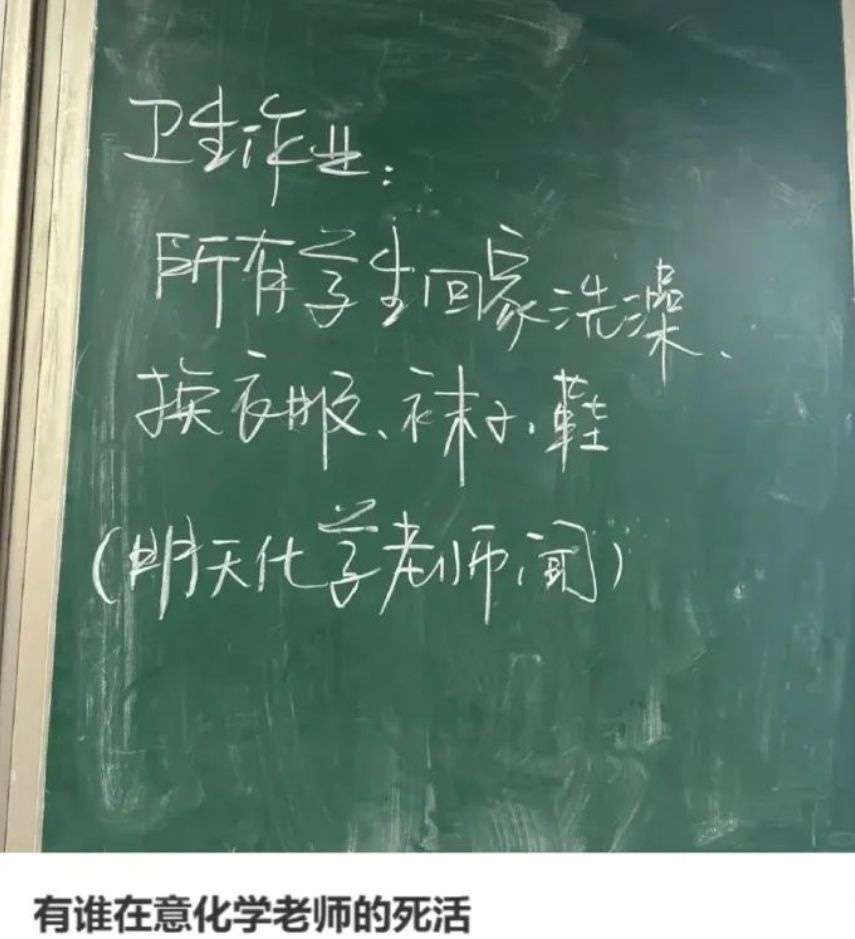 卫生作业:
所有学生回家洗澡、
换衣服、袜子、鞋
(明天化学老师闻)
有谁在意化学老师的死活